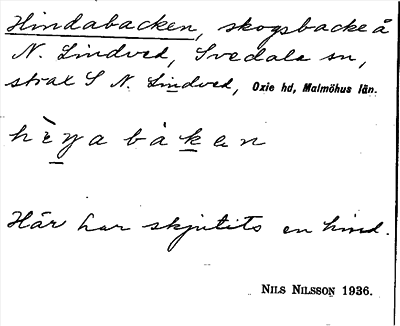 Hindabacken, skogsbacke å
N. Lindved, Svedala sn,
strax S N. Lindved, Oxie hd, Malmöhus län.
Här har skjutits en hind.
NILS NILSSON 1936.